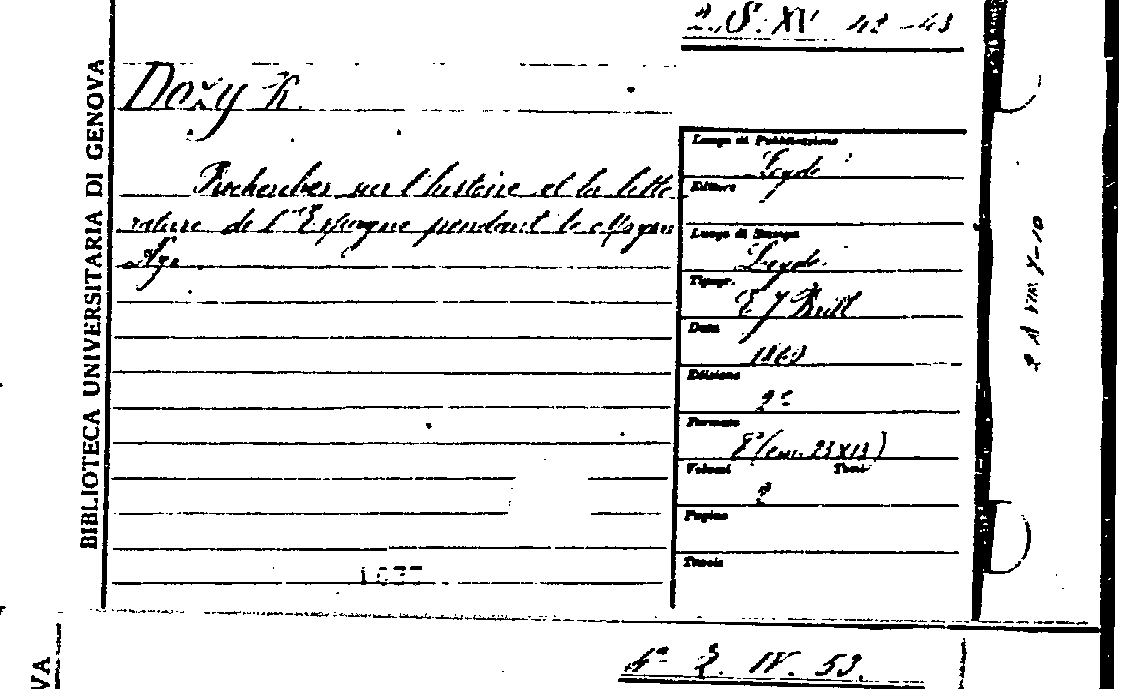 2. S. XV 42-43
BIBLIOTECA UNIVERSITARIA DI GENOVA
Dozy R.
Recherches sur l'histoire et la litte
rature de l'Espagne pendant le moyen
Age
Luogo di Pubblicazione
Leyde
Editore
Luogo di Stampa
Leyde
Tipogr.
E J Brill
Data
1860
Edizione
2ª
Formato
8º (cm. 23x13)
Volumi Tomi
2
Pagine
Tavole
VA
4ª 2. IV. 53.